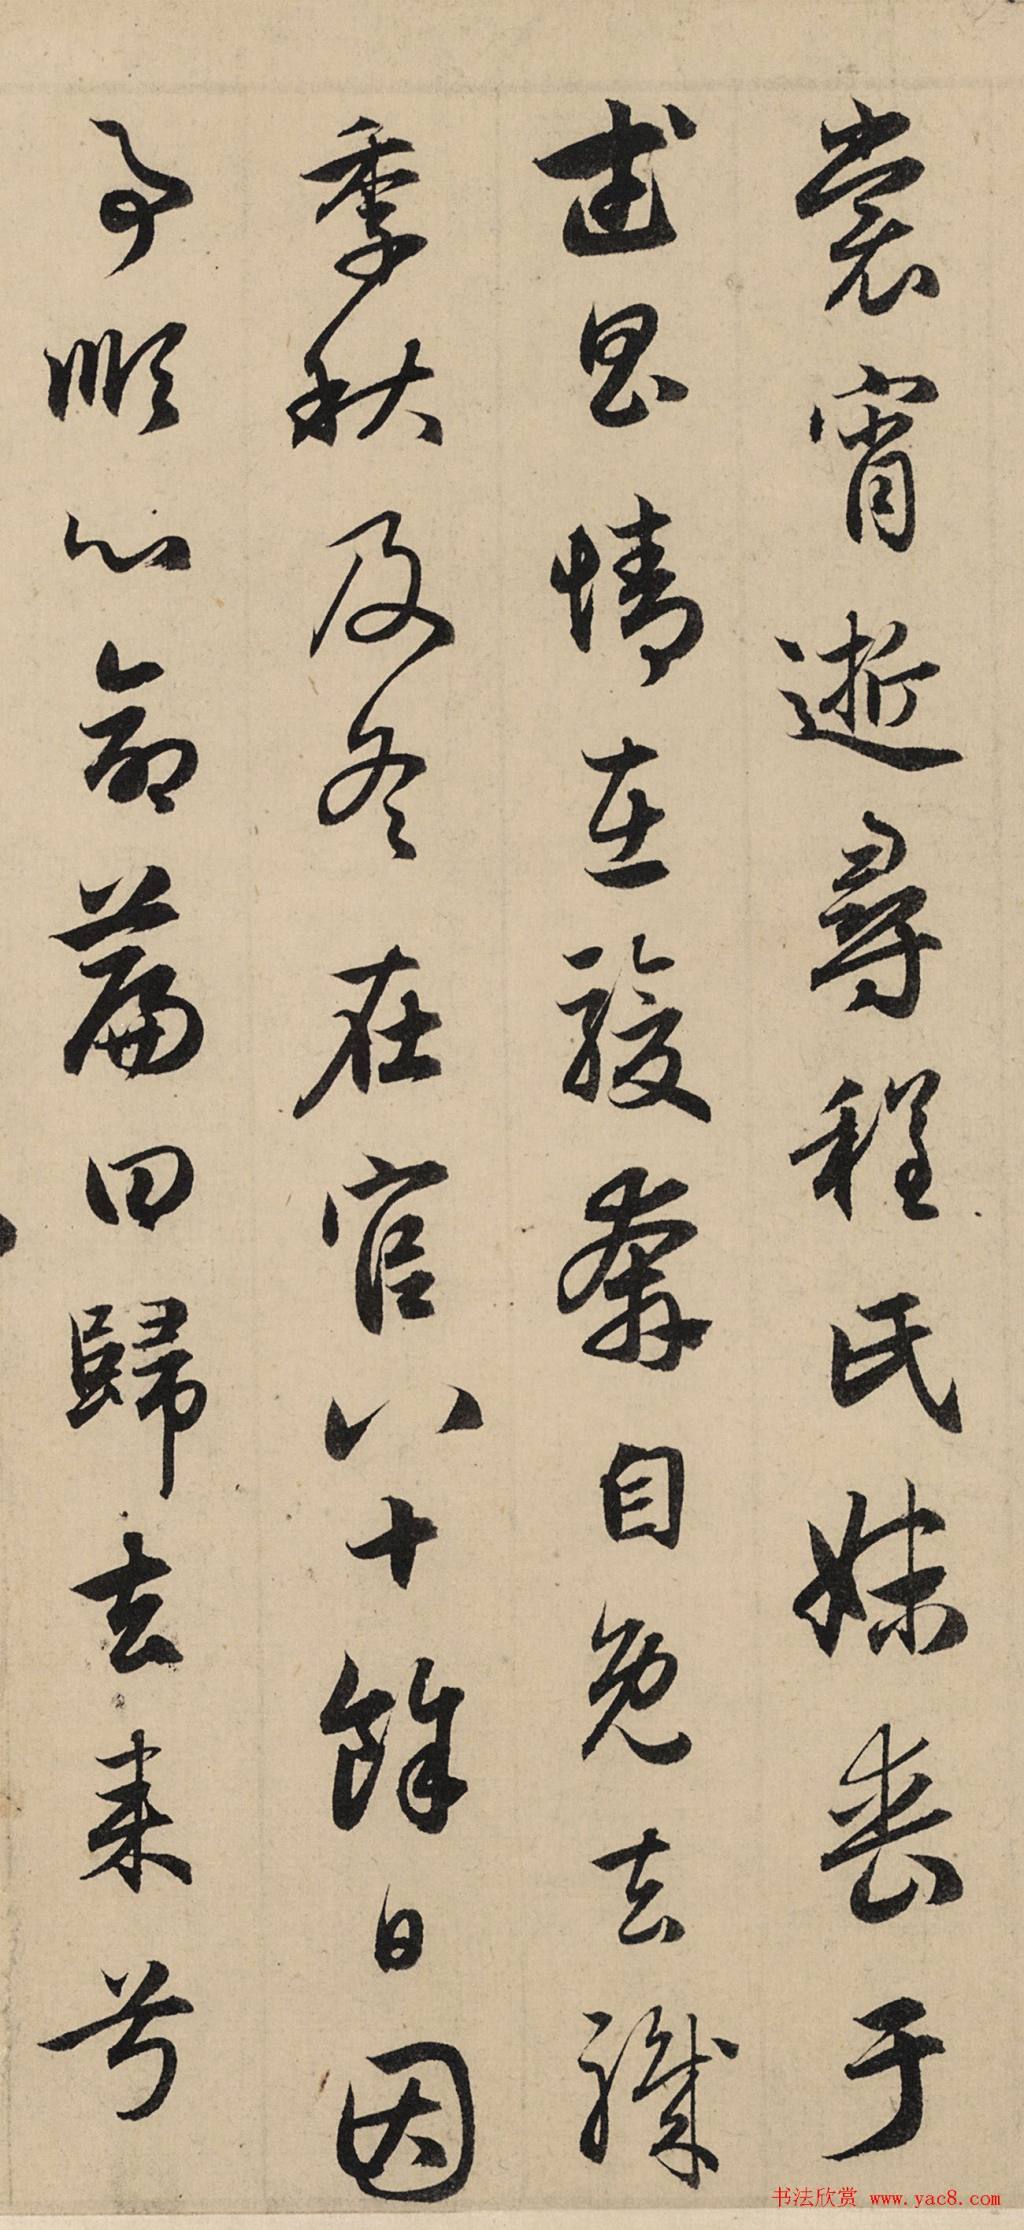 裳宵逝尋程氏妹喪于
武昌情在駿奔自免去職
季秋及冬在官八十餘日因
事順心命篇曰歸去來兮
书法欣赏 www.yac8.com